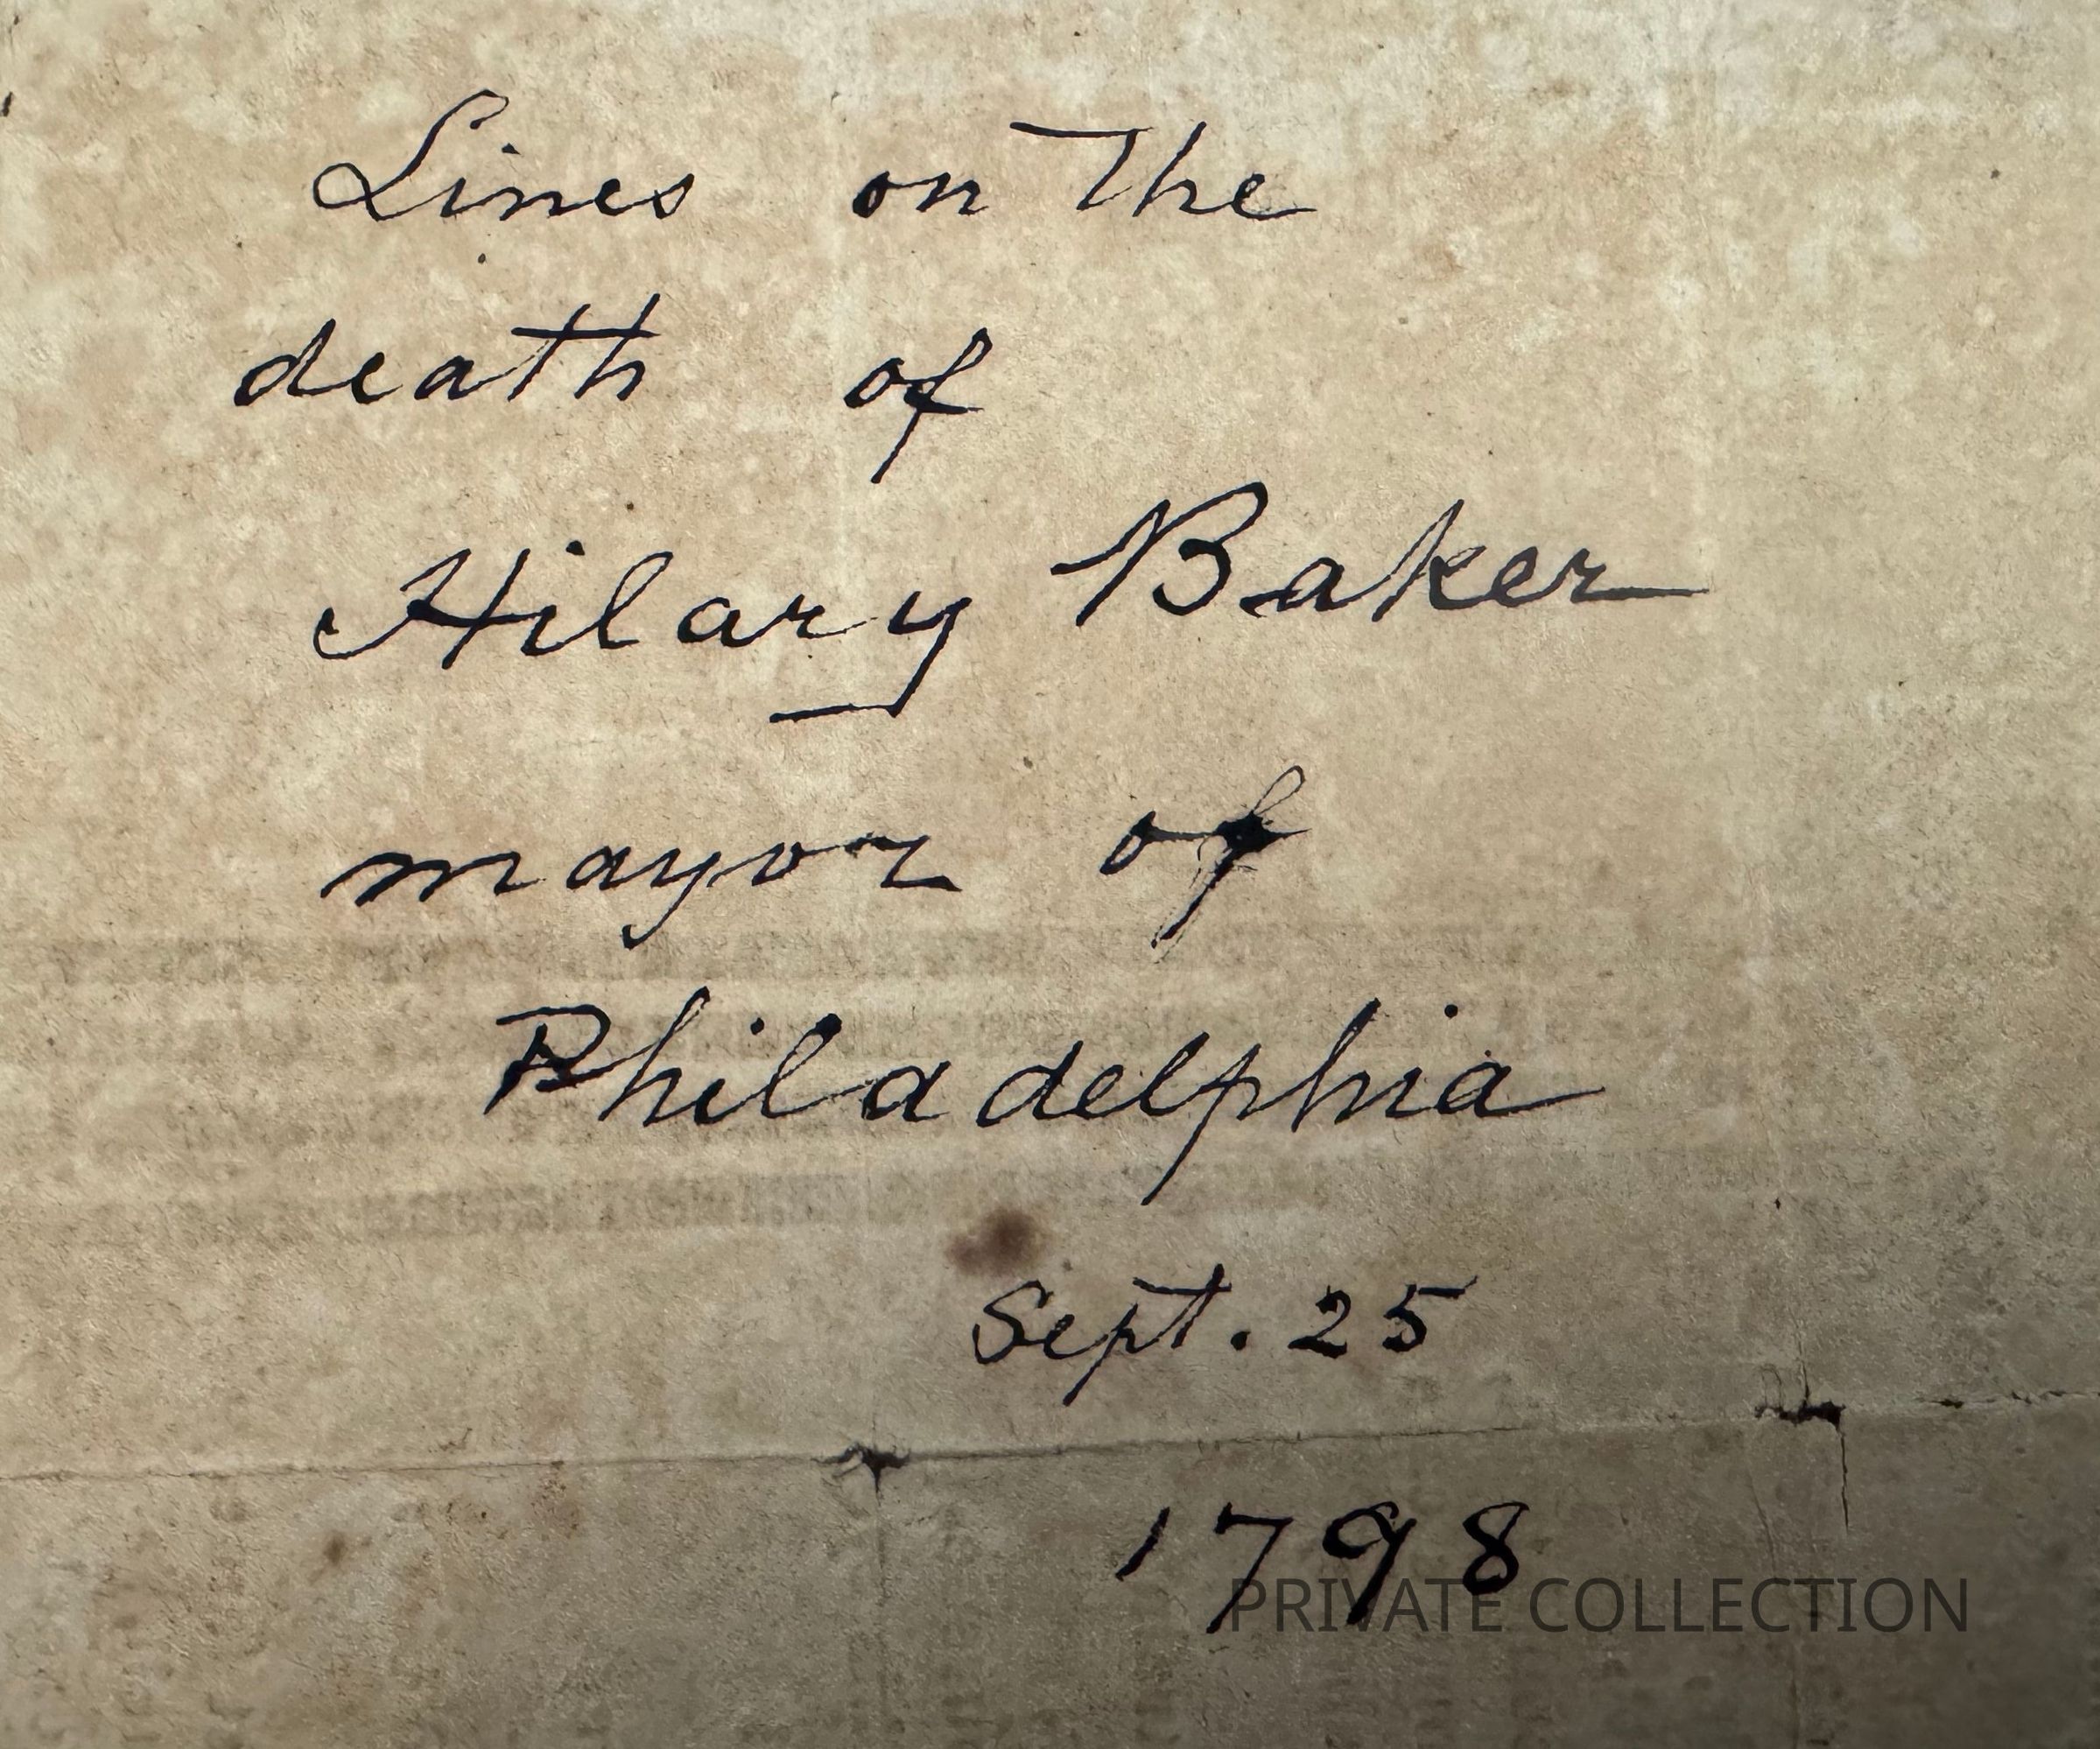 Lines on the
death of
Hilary Baker
mayor of
Philadelphia
Sept. 25
1798
PRIVATE COLLECTION